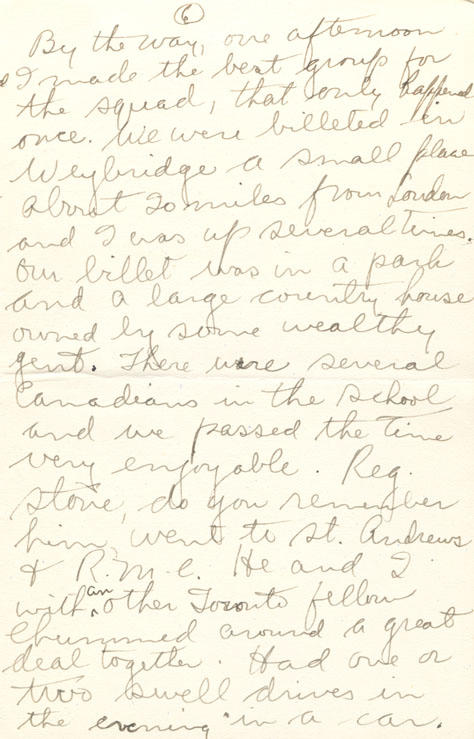 6
By the way, one afternoon
I made the best group for
the squad, that only happened
once. We were billeted in
Weybridge a small place
about 20 miles from London
and I was up several times.
Our billet was in a park
and a large country house
owned by some wealthy
gent. There were several
Canadians in the school
and we passed the time
very enjoyable. Reg.
Stone, do you remember
him, went to St. Andrews
& R.M.C. He and I
with an other Toronto fellow
Chummed around a great
deal together. Had one or
two swell drives in
the evening in a car.